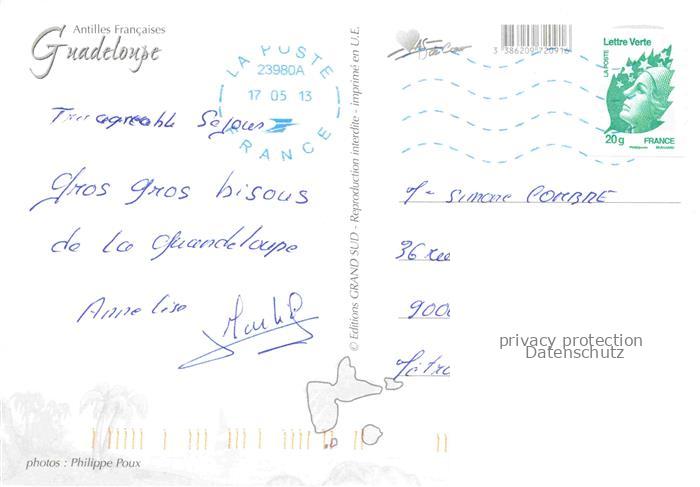 Antilles Françaises
Guadeloupe
LA POSTE
23980A
17 05 13
FRANCE
Très agréable Séjour
Gros gros bisous
de la Guandeloupe
Anne Lise
© Editions GRAND SUD - Reproduction interdite - imprimé en U.E.
3 386209 720916
Lettre Verte
LA POSTE
20g FRANCE
Simone
36 rue
9000
privacy protection
Datenschutz
photos : Philippe Poux